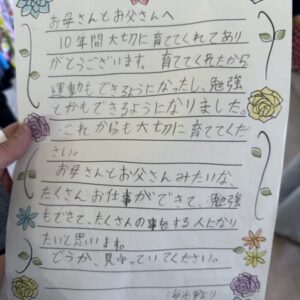 お母さんとお父さんへ
10年間大切に育ててくれてあり
がとうございます。育ててくれたから
運動もできるようになったし、勉強
とかもできるようになりました。
これからも大切に育ててくだ
さい。
お母さんとお父さんみたいな、
たくさんお仕事ができて、勉強
もできて、たくさんの事をする人になり
たいと思います。
どうか、見守っていてください。
より